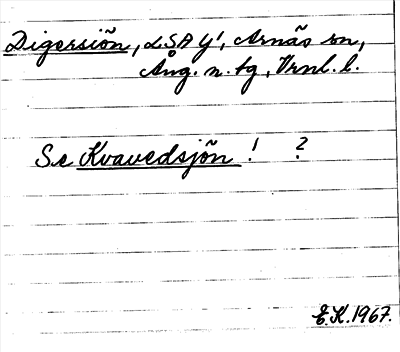 Digersjön, LSA Y, Arnäs sn,
Ång. n. tg, Vrnl. l.
Se Kvavedsjön ! ?
E.K. 1967.